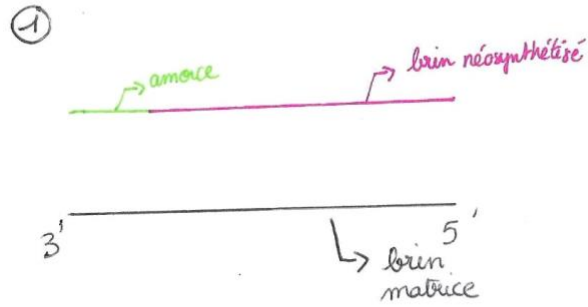 1
amorce
brin néosynthétisé
3'
5'
brin
matrice